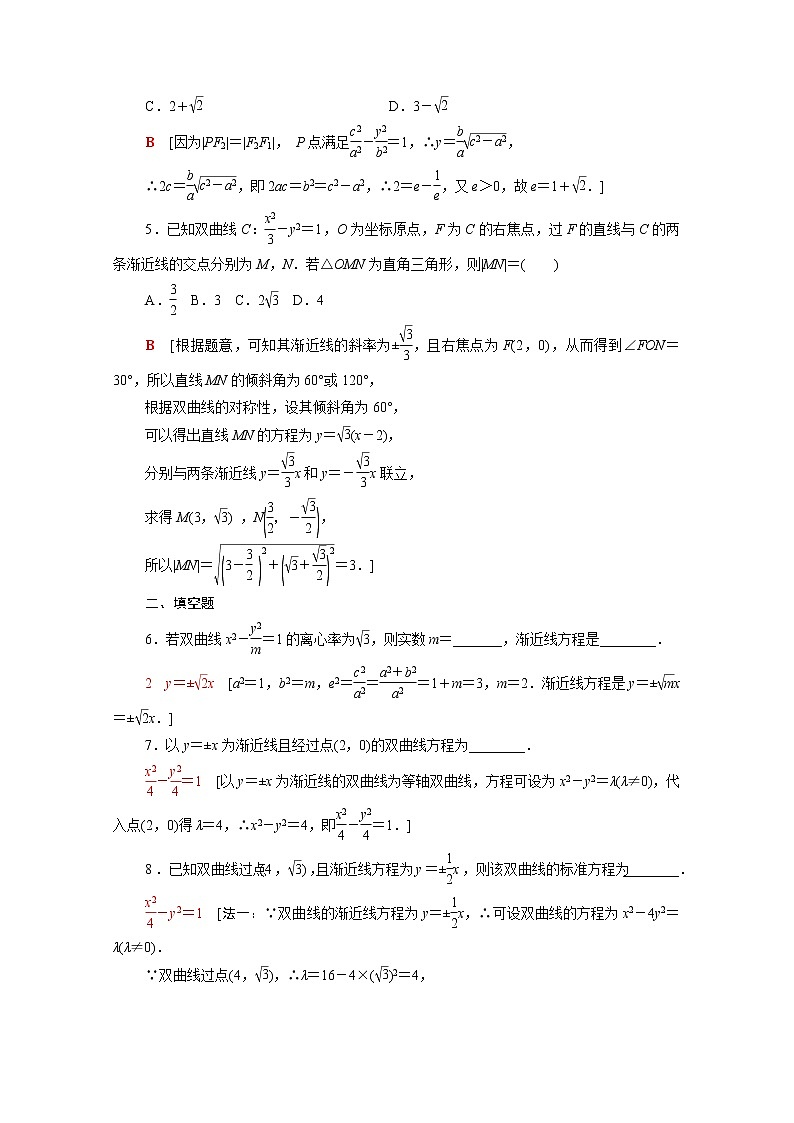 C．2＋√2　　D．3－√2
B　[因为|PF₂|＝|F₂F₁|， P点满足c²/a²－y²/b²＝1，∴y＝(b/a)√(c²－a²)，
∴2c＝(b/a)√(c²－a²)，即2ac＝b²＝c²－a²，∴2＝e－1/e，又e＞0，故e＝1＋√2．]
5．已知双曲线C：x²/3－y²＝1，O为坐标原点，F为C的右焦点，过F的直线与C的两
条渐近线的交点分别为M，N．若△OMN为直角三角形，则|MN|＝(　　)
A．3/2　B．3　C．2√3　D．4
B　[根据题意，可知其渐近线的斜率为±√3/3，且右焦点为F(2，0)，从而得到∠FON＝
30°，所以直线MN的倾斜角为60°或120°，
根据双曲线的对称性，设其倾斜角为60°，
可以得出直线MN的方程为y＝√3(x－2)，
分别与两条渐近线y＝(√3/3)x和y＝－(√3/3)x联立，
求得M(3，√3) ，N(3/2，－√3/2)，
所以|MN|＝√((3－3/2)²＋(√3＋√3/2)²)＝3．]
二、填空题
6．若双曲线x²－y²/m＝1的离心率为√3，则实数m＝_______，渐近线方程是________．
2　y＝±√2x　[a²＝1，b²＝m，e²＝c²/a²＝(a²＋b²)/a²＝1＋m＝3，m＝2．渐近线方程是y＝±√mx
＝±√2x．]
7．以y＝±x为渐近线且经过点(2，0)的双曲线方程为________．
x²/4－y²/4＝1　[以y＝±x为渐近线的双曲线为等轴双曲线，方程可设为x²－y²＝λ(λ≠0)，代
入点(2，0)得λ＝4，∴x²－y²＝4，即x²/4－y²/4＝1．]
8．已知双曲线过点(4，√3)，且渐近线方程为y＝±(1/2)x，则该双曲线的标准方程为________．
x²/4－y²＝1　[法一：∵双曲线的渐近线方程为y＝±(1/2)x，∴可设双曲线的方程为x²－4y²＝
λ(λ≠0)．
∵双曲线过点(4，√3)，∴λ＝16－4×(√3)²＝4，